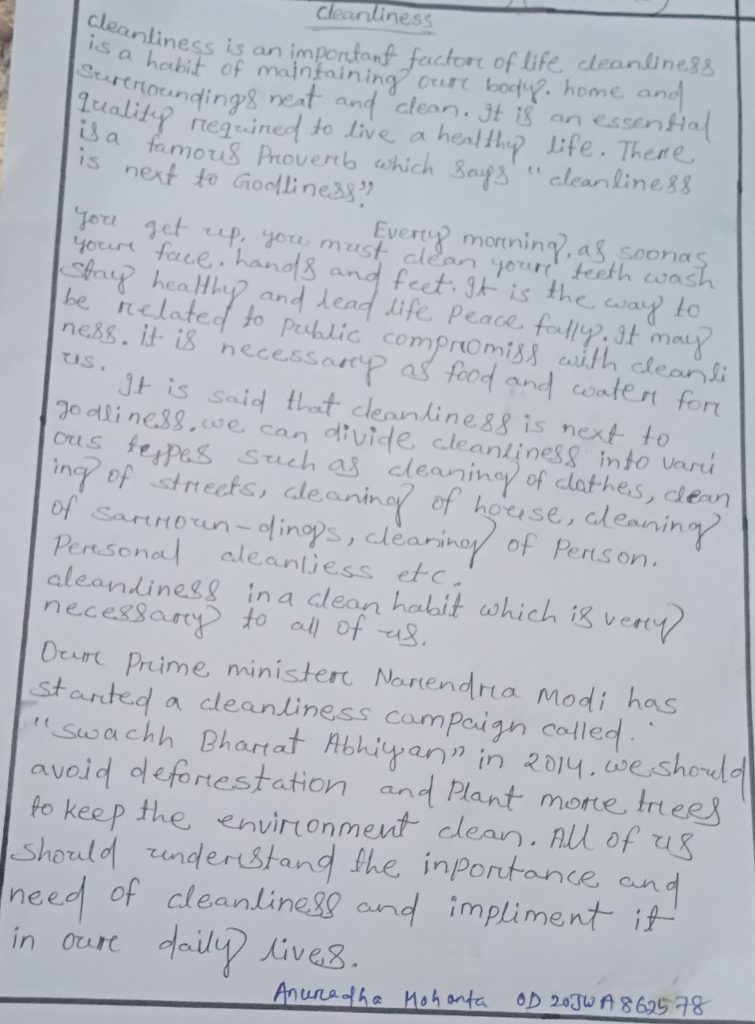 cleanliness
cleanliness is an important factor of life cleanliness
is a habit of maintaining our body. home and
surroundings neat and clean. It is an essential
quality required to live a healthy life. There
is a famous Proverb which says "cleanliness
is next to Godliness".
Every morning, as soonas
you get up, you must clean your teeth wash
your face. hands and feet. It is the way to
stay healthy and lead life peace fally. It may
be related to public compromiss with cleanli
ness. it is necessary as food and water for
us.
It is said that cleanliness is next to
godliness. we can divide cleanliness into vari
ous types such as cleaning of clothes, clean
ing of streets, cleaning of house, cleaning
of sarroun-dings, cleaning of Person.
Personal cleanliess etc.
cleanliness in a clean habit which is very
necessary to all of us.
Our Prime minister Narendra Modi has
started a cleanliness campaign called.
"swachh Bharat Abhiyan" in 2014. we should
avoid deforestation and Plant more trees
to keep the environment clean. All of us
should understand the inportance and
need of cleanliness and impliment it
in our daily lives.
Anuradha Mohanta OD 20JWA862578